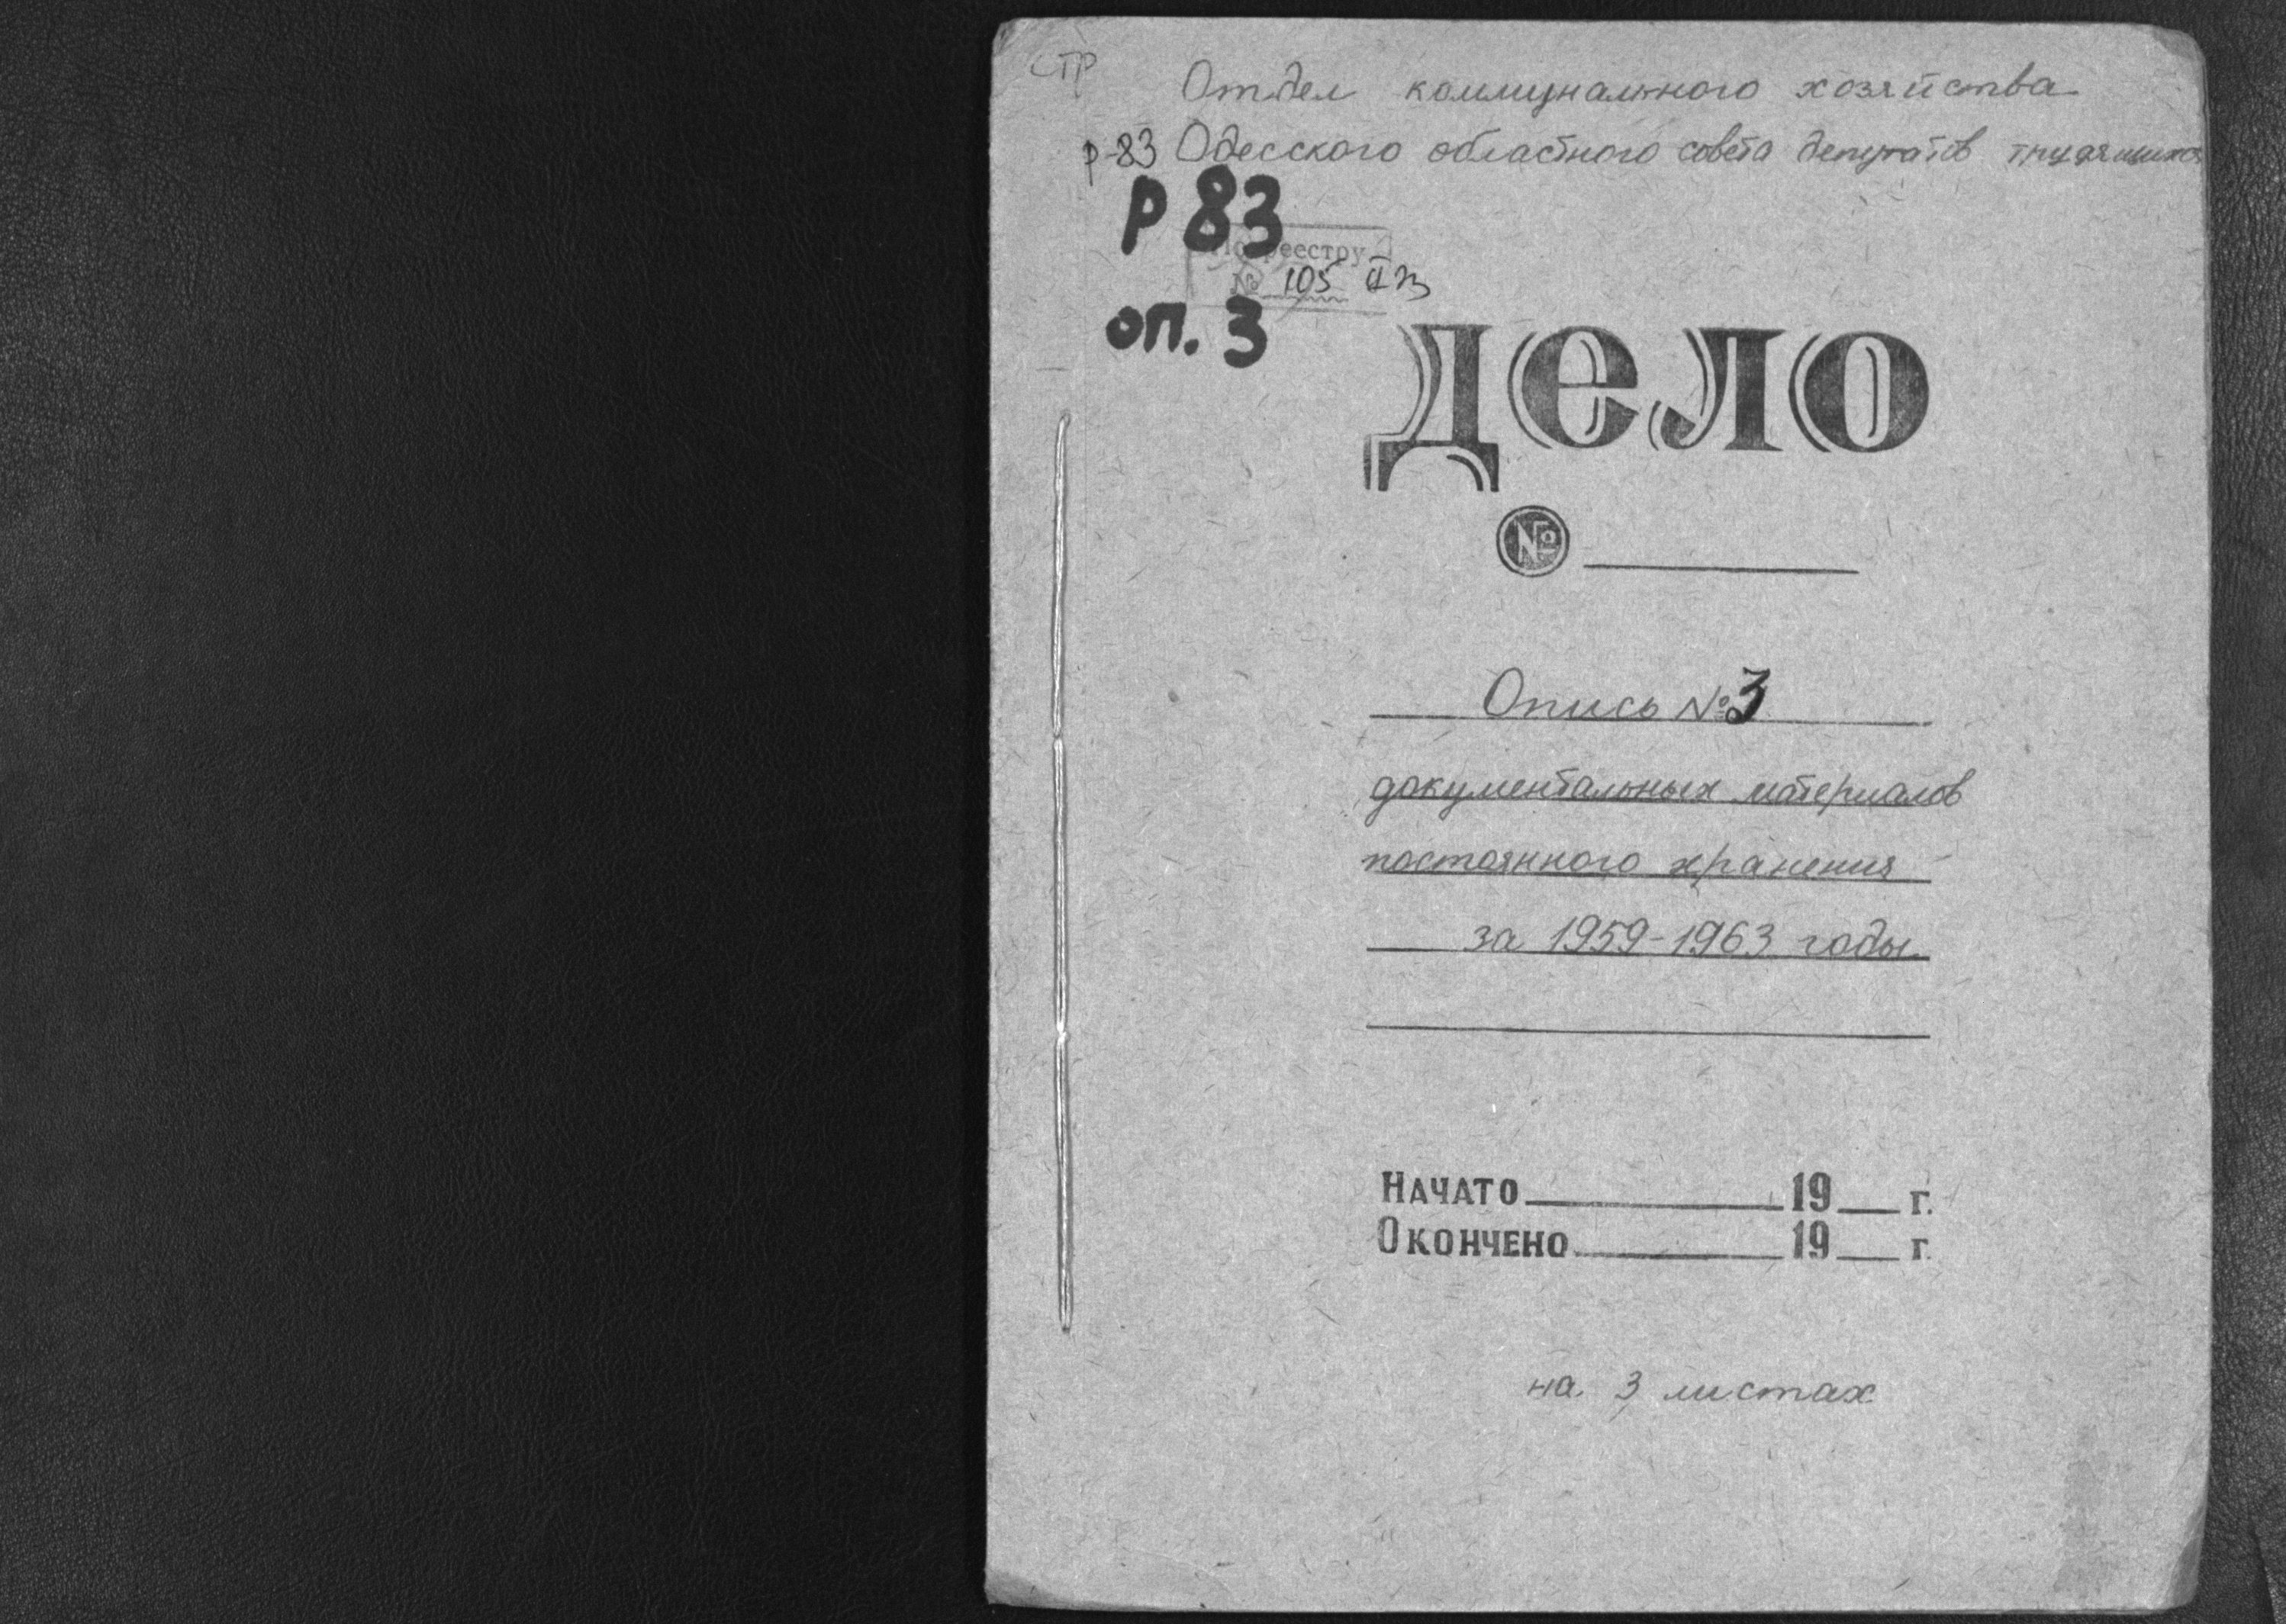 стр
Отдел коммунального хозяйства
р-83 Одесского областного совета депутатов трудящихся
Р 83
По реестру
№ 105
оп. 3
дело
№
Опись № 3
документальных материалов
постоянного хранения
за 1959-1963 годы
НАЧАТО 19 г.
ОКОНЧЕНО 19 г.
на 3 листах